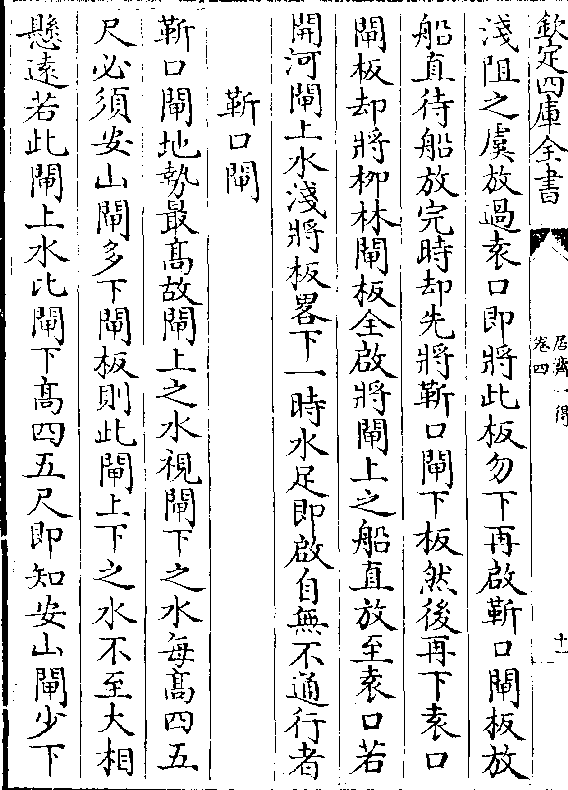 欽定四庫全書
居濟一得
卷四
十一
淺阻之虞放過袁口即將此板勿下再啟靳口閘板放
船直待船放完時却先將靳口閘下板然後再下袁口
閘板却將栁林閘板全啟將閘上之船直放至袁口若
開河閘上水淺將板畧下一時水足即啟自無不通行者
靳口閘
靳口閘地勢最髙故閘上之水視閘下之水每髙四五
尺必須安山閘多下閘板則此閘上下之水不至大相
懸遠若此閘上水比閘下髙四五尺即知安山閘少下